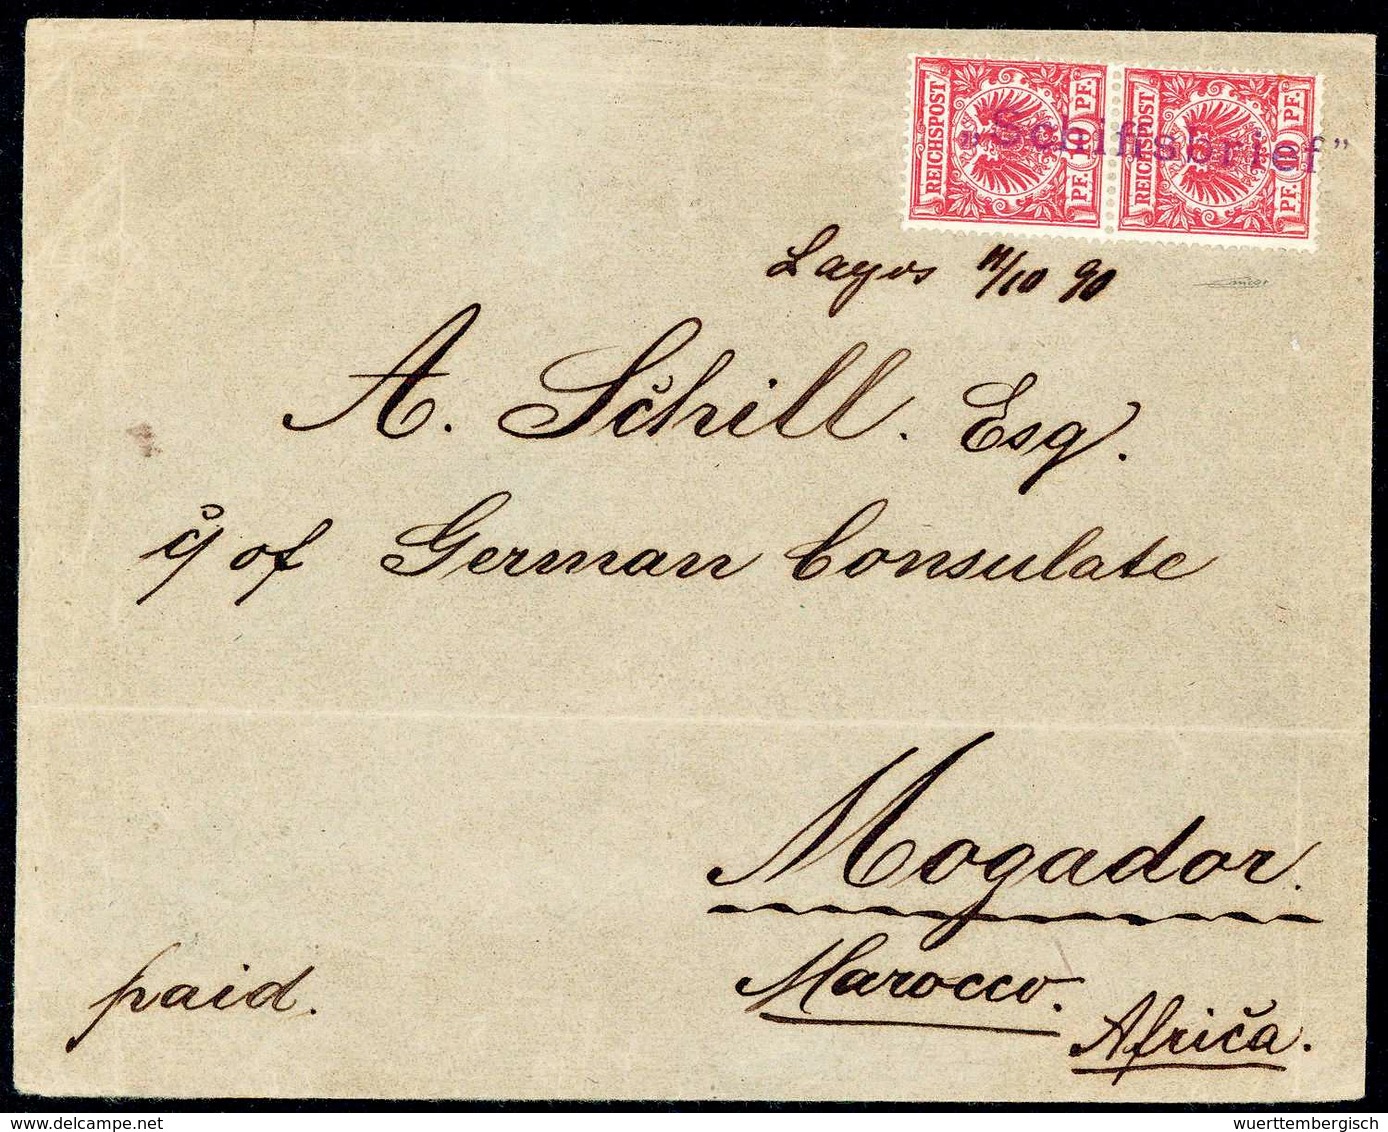 REICHSPOST 10 PF. PF. REICHSPOST 10 PF. PF.
„Schiffsbrief”
Lagos 11/10 90
A. Schill. Esq.
of German Consulate
Mogador.
Marocco.
Africa.
paid.
www.wuerttembergisch